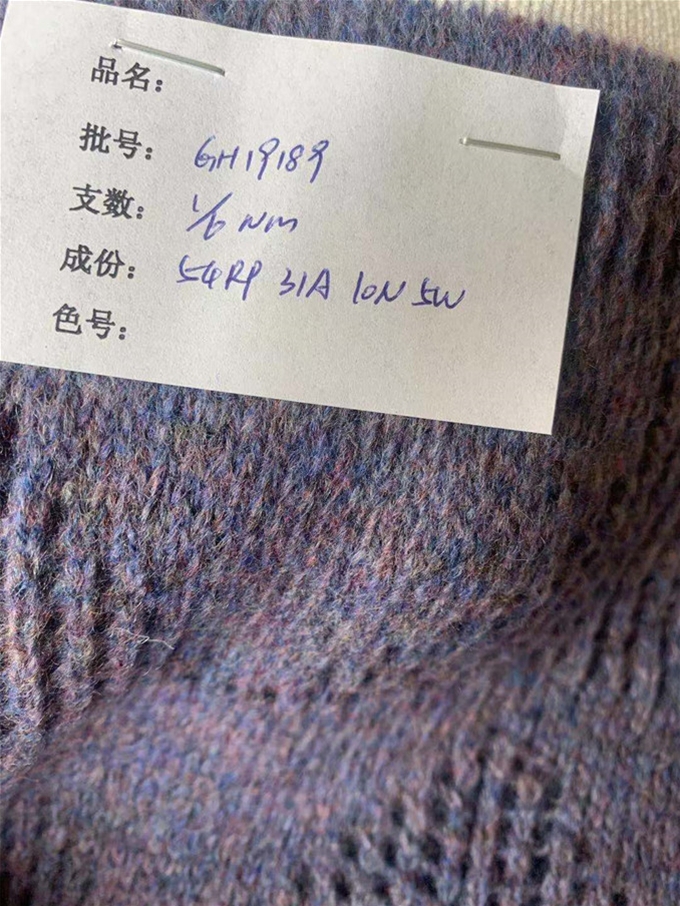 品名：
批号： GH19189
支数： 1/6 NM
成份： 54RP 31A 10N 5W
色号：